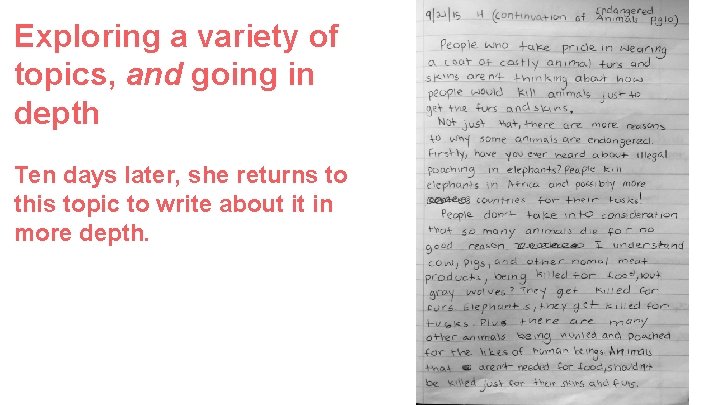 Exploring a variety of
topics, and going in
depth
Ten days later, she returns to
this topic to write about it in
more depth.
9/21/15 H (continuation of Endangered Animals pg10)
People who take pride in wearing
a coat of costly animal furs and
skins arent thinking about how
people would kill animals just to
get the furs and skins.
Not just that, there are more reasons
to why some animals are endangered.
Firstly, have you ever heard about illegal
poaching in elephants? People kill
elephants in Africa and possibly more
countries for their tusks!
People don't take into consideration
that so many animals die for no
good reason. I understand
cow, pigs, and other normal meat
products, being killed for food, but
gray wolves? They get killed for
furs. Elephants, they get killed for
tusks. Plus there are many
other animals being hunted and poached
for the likes of human beings. Animals
that arent needed for food, shouldnt
be killed just for their skins and furs.